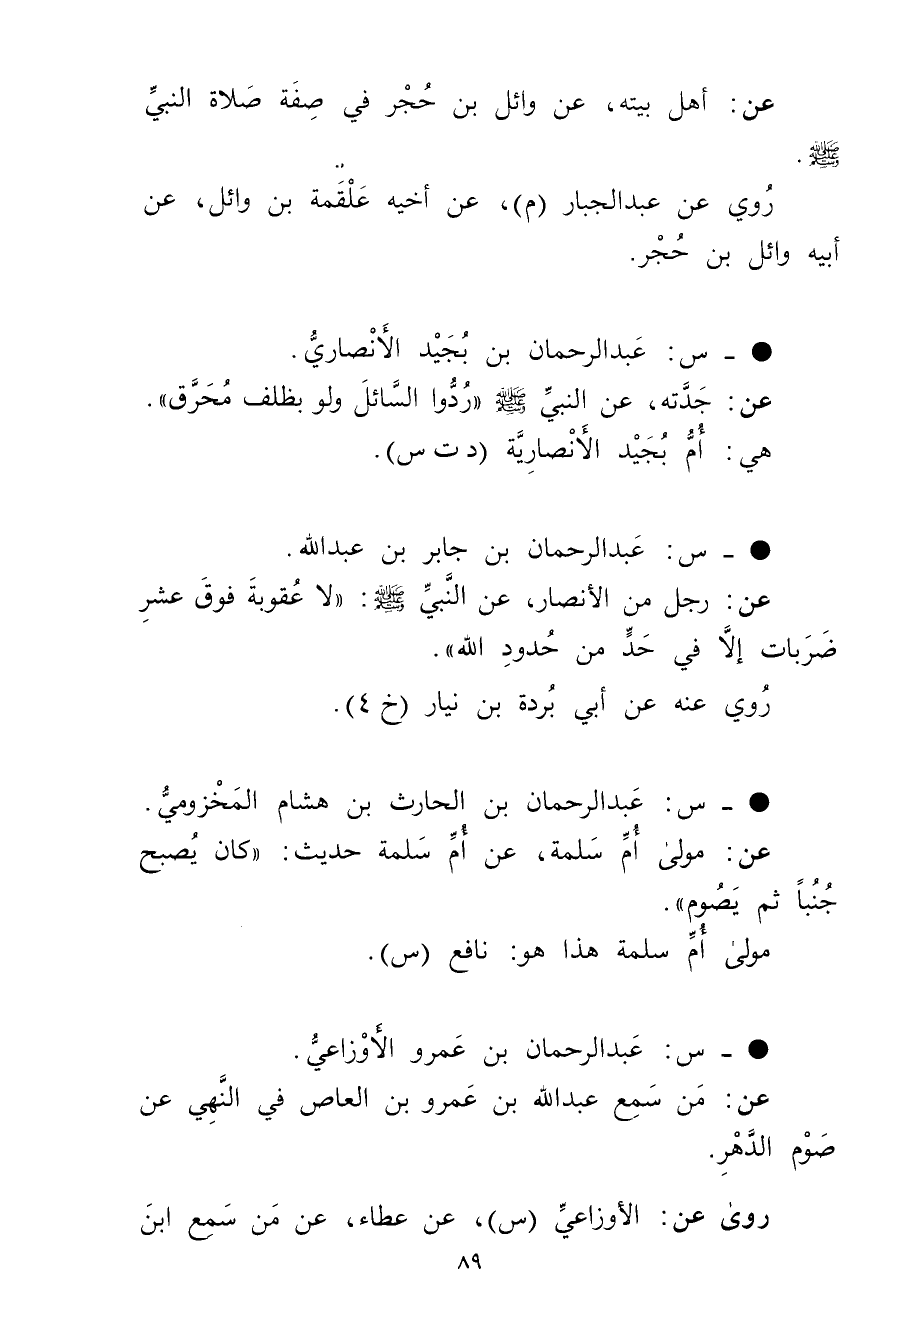 عن: أهل بيته، عن وائل بن حُجْر في صِفَة صَلاة النبيِّ
ﷺ.
رُوي عن عبدالجبار (م)، عن أخيه عَلْقَمة بن وائل، عن
أبيه وائل بن حُجْر.
● ـ س: عَبدالرحمان بن بُجَيْد الأَنْصاريُّ.
عن: جَدَّته، عن النبيِّ ﷺ «رُدُّوا السَّائلَ ولو بظلف مُحَرَّق».
هي: أُمُّ بُجَيْد الأَنْصارِيَّة (د ت س).
● ـ س: عَبدالرحمان بن جابر بن عبدالله.
عن: رجل من الأنصار، عن النَّبيِّ ﷺ: «لا عُقوبةَ فوقَ عشرِ
ضَرَبات إلَّا في حَدٍّ من حُدودِ الله».
رُوي عنه عن أبي بُردة بن نيار (خ ٤).
● ـ س: عَبدالرحمان بن الحارث بن هشام المَخْزوميُّ.
عن: مولىٰ أُمِّ سَلمة، عن أُمِّ سَلمة حديث: «كان يُصبح
جُنُباً ثم يَصُوم».
مولىٰ أُمِّ سلمة هذا هو: نافع (س).
● ـ س: عَبدالرحمان بن عَمرو الأَوْزاعيُّ.
عن: مَن سَمِع عبدالله بن عَمرو بن العاص في النَّهِي عن
صَوْم الدَّهْرِ.
روىٰ عن: الأوزاعيِّ (س)، عن عطاء، عن مَن سَمِع ابنَ
٨٩